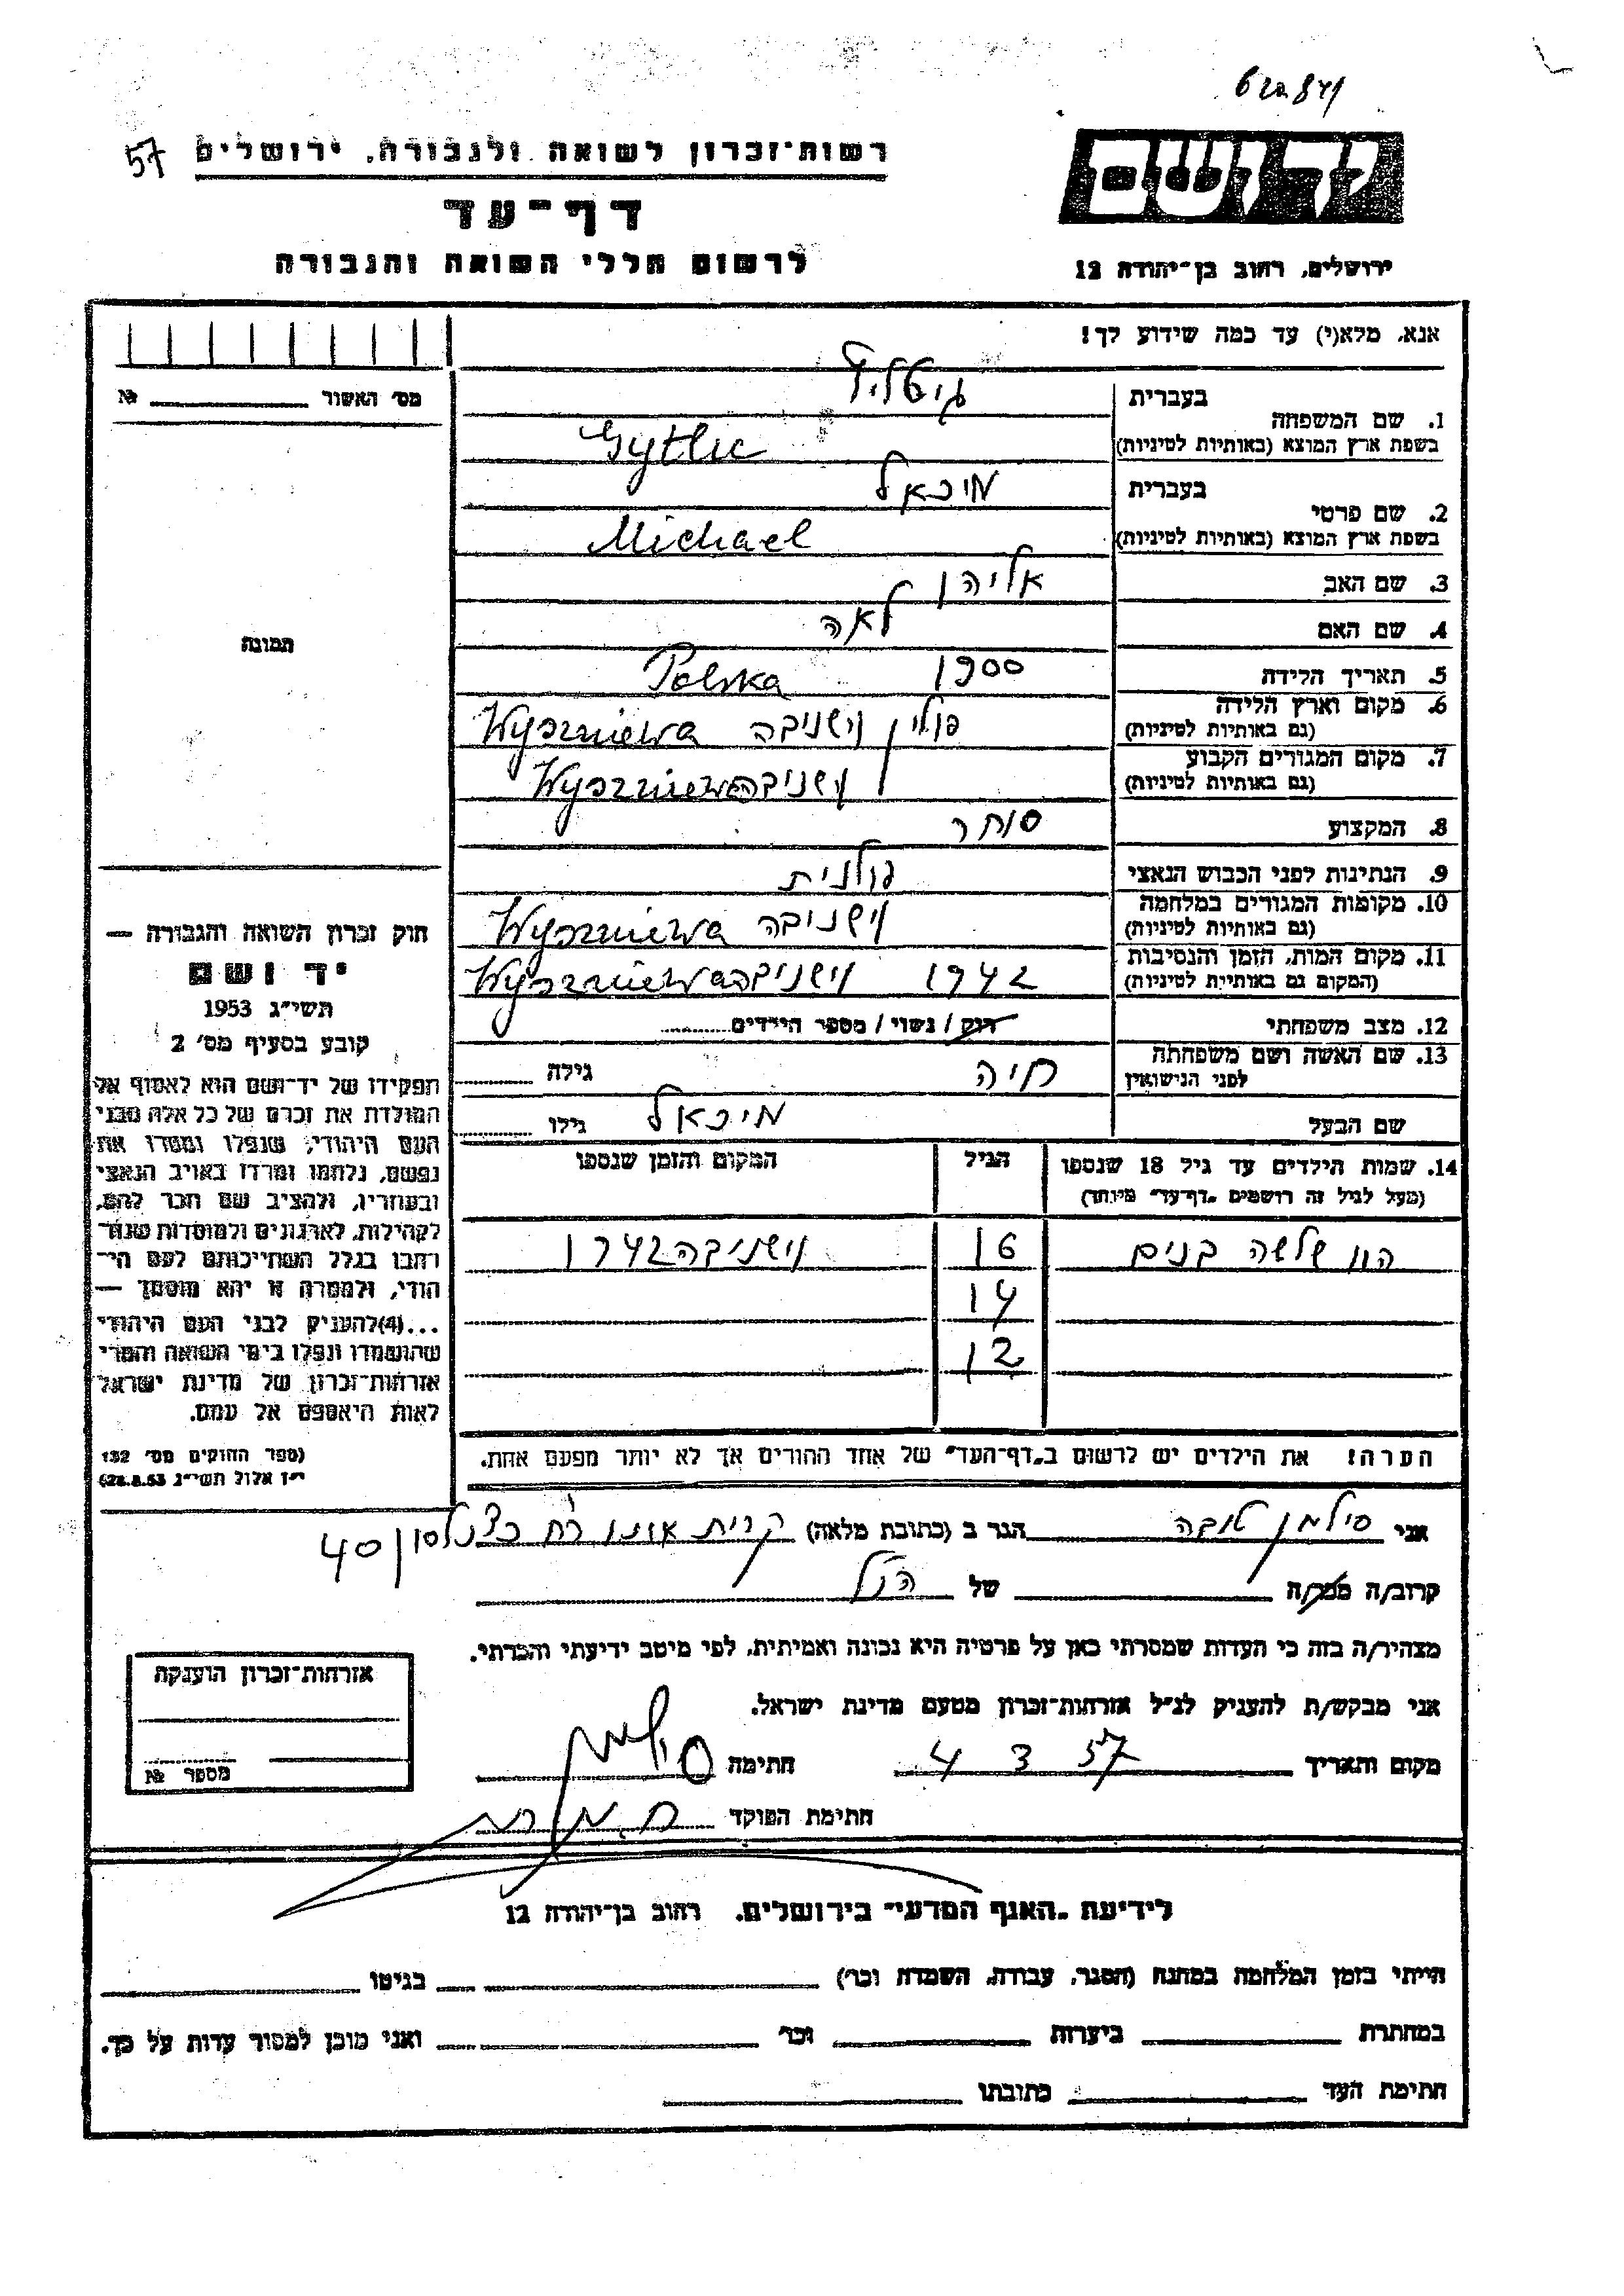 6 za 841
57
רשות-זכרון לשואה ולגבורה, ירושלים
יד ושם
דף-עד
לרשום חללי השואה והגבורה
ירושלים, רחוב בן-יהודה 12
אנא, מלא(י) עד כמה שידוע לך!
מס׳ האשור № ____
1. שם המשפחה בעברית
בשפת ארץ המוצא (באותיות לטיניות)
Gytlic
2. שם פרטי בעברית מיכאל
בשפת ארץ המוצא (באותיות לטיניות) Michael
3. שם האב אליהו
4. שם האם לאה
תמונה
5. תאריך הלידה 1900 Polska
6. מקום וארץ הלידה (גם באותיות לטיניות) פולין וישניבה Wyszniewa
7. מקום המגורים הקבוע (גם באותיות לטיניות) וישניבה Wyszniewa
8. המקצוע סוחר
9. הנתינות לפני הכבוש הנאצי פולנית
10. מקומות המגורים במלחמה (גם באותיות לטיניות) וישניבה Wyszniewa
11. מקום המות, הזמן והנסיבות (המקום גם באותיות לטיניות) 1942 וישניבה Wyszniewa
12. מצב משפחתי רוק/ נשוי/ מספר הילדים........
13. שם האשה ושם משפחתה לפני הנישואין חיה גילה ........
שם הבעל מיכאל גילו ........
14. שמות הילדים עד גיל 18 שנספו (מעל לגיל זה רושמים „דף-עד״ מיוחד) הגיל המקום והזמן שנספו
היו שלשה בנים 16 וישניבה 1942
14
12
הערה! את הילדים יש לרשום ב„דף-העד״ של אחד ההורים אך לא יותר מפעם אחת.
חוק זכרון השואה והגבורה —
יד ושם
תשי״ג 1953
קובע בסעיף מס׳ 2
תפקידו של יד-ושם הוא לאסוף אל
המולדת את זכרם של כל אלה מבני
העם היהודי, שנפלו ומסרו את
נפשם, נלחמו ומרדו באויב הנאצי
ובעוזריו, ולהציב שם וזכר להם,
לקהילות, לארגונים ולמוסדות שנח-
רבו בגלל השתייכותם לעם הי-
הודי, ולמטרה זו יהא מוסמך —
...(4)להעניק לבני העם היהודי
שהושמדו ונפלו בימי השואה והמרי
אזרחות-זכרון של מדינת ישראל
לאות היאספם אל עמם.
(ספר החוקים מס׳ 132
י״ז אלול תשי״ג 28.8.53)
אני סילמן טובה הגר ב (כתובת מלאה) קרית אונו רח׳ כצנלסון 40
קרוב/ה מכר/ה ____ של הנ״ל
מצהיר/ה בזה כי העדות שמסרתי כאן על פרטיה היא נכונה ואמיתית, לפי מיטב ידיעתי והכרתי.
אני מבקש/ת להעניק לנ״ל אזרחות-זכרון מטעם מדינת ישראל.
מקום ותאריך 4 3 57 חתימה
חתימת הפוקד
אזרחות-זכרון הוענקה
מספר №
לידיעת „האגף המדעי״ בירושלים, רחוב בן-יהודה 12
הייתי בזמן המלחמה במחנה (הסגר, עבודה, השמדה וכו׳) ____ בגיטו ____
במחתרת ____ ביערות ____ וכו׳ ____ ואני מוכן למסור עדות על כך.
חתימת העד ____ כתובתו ____